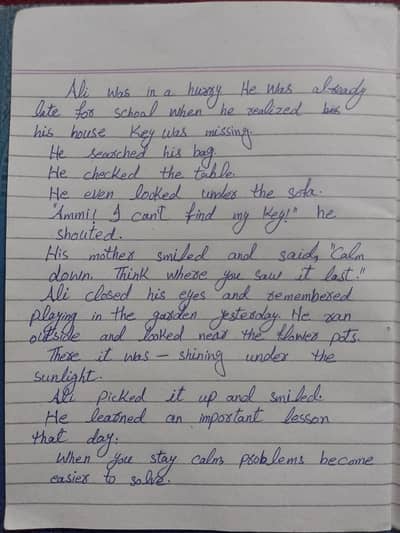 Ali was in a hurry He was already
late for school when he realized his
his house key was missing.
He searched his bag.
He checked the table.
He even looked under the sofa.
"Ammi! I can't find my key!" he
shouted.
His mother smiled and said, "Calm
down. Think where you saw it last."
Ali closed his eyes and remembered
playing in the garden yesterday. He ran
outside and looked near the flower pots.
There it was – shining under the
sunlight.
Ali picked it up and smiled.
He learned an important lesson
that day.
When you stay calm problems become
easier to solve.